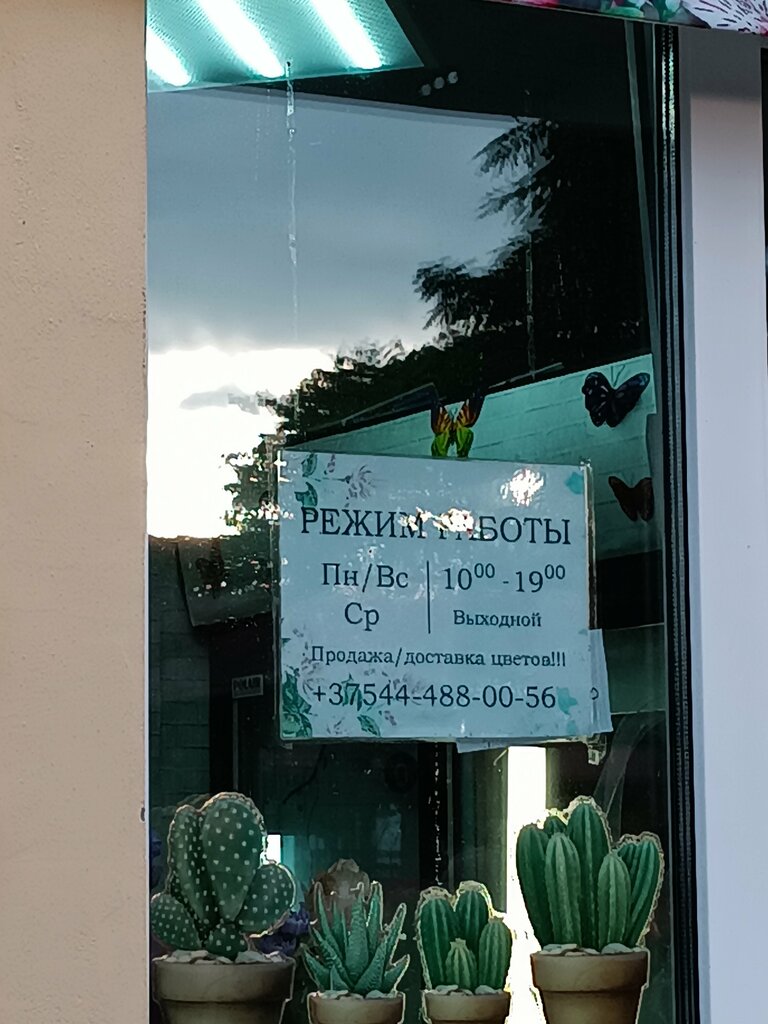 РЕЖИМ РАБОТЫ
Пн/Вс 10⁰⁰ - 19⁰⁰
Ср Выходной
Продажа/доставка цветов!!!
+37544-488-00-56